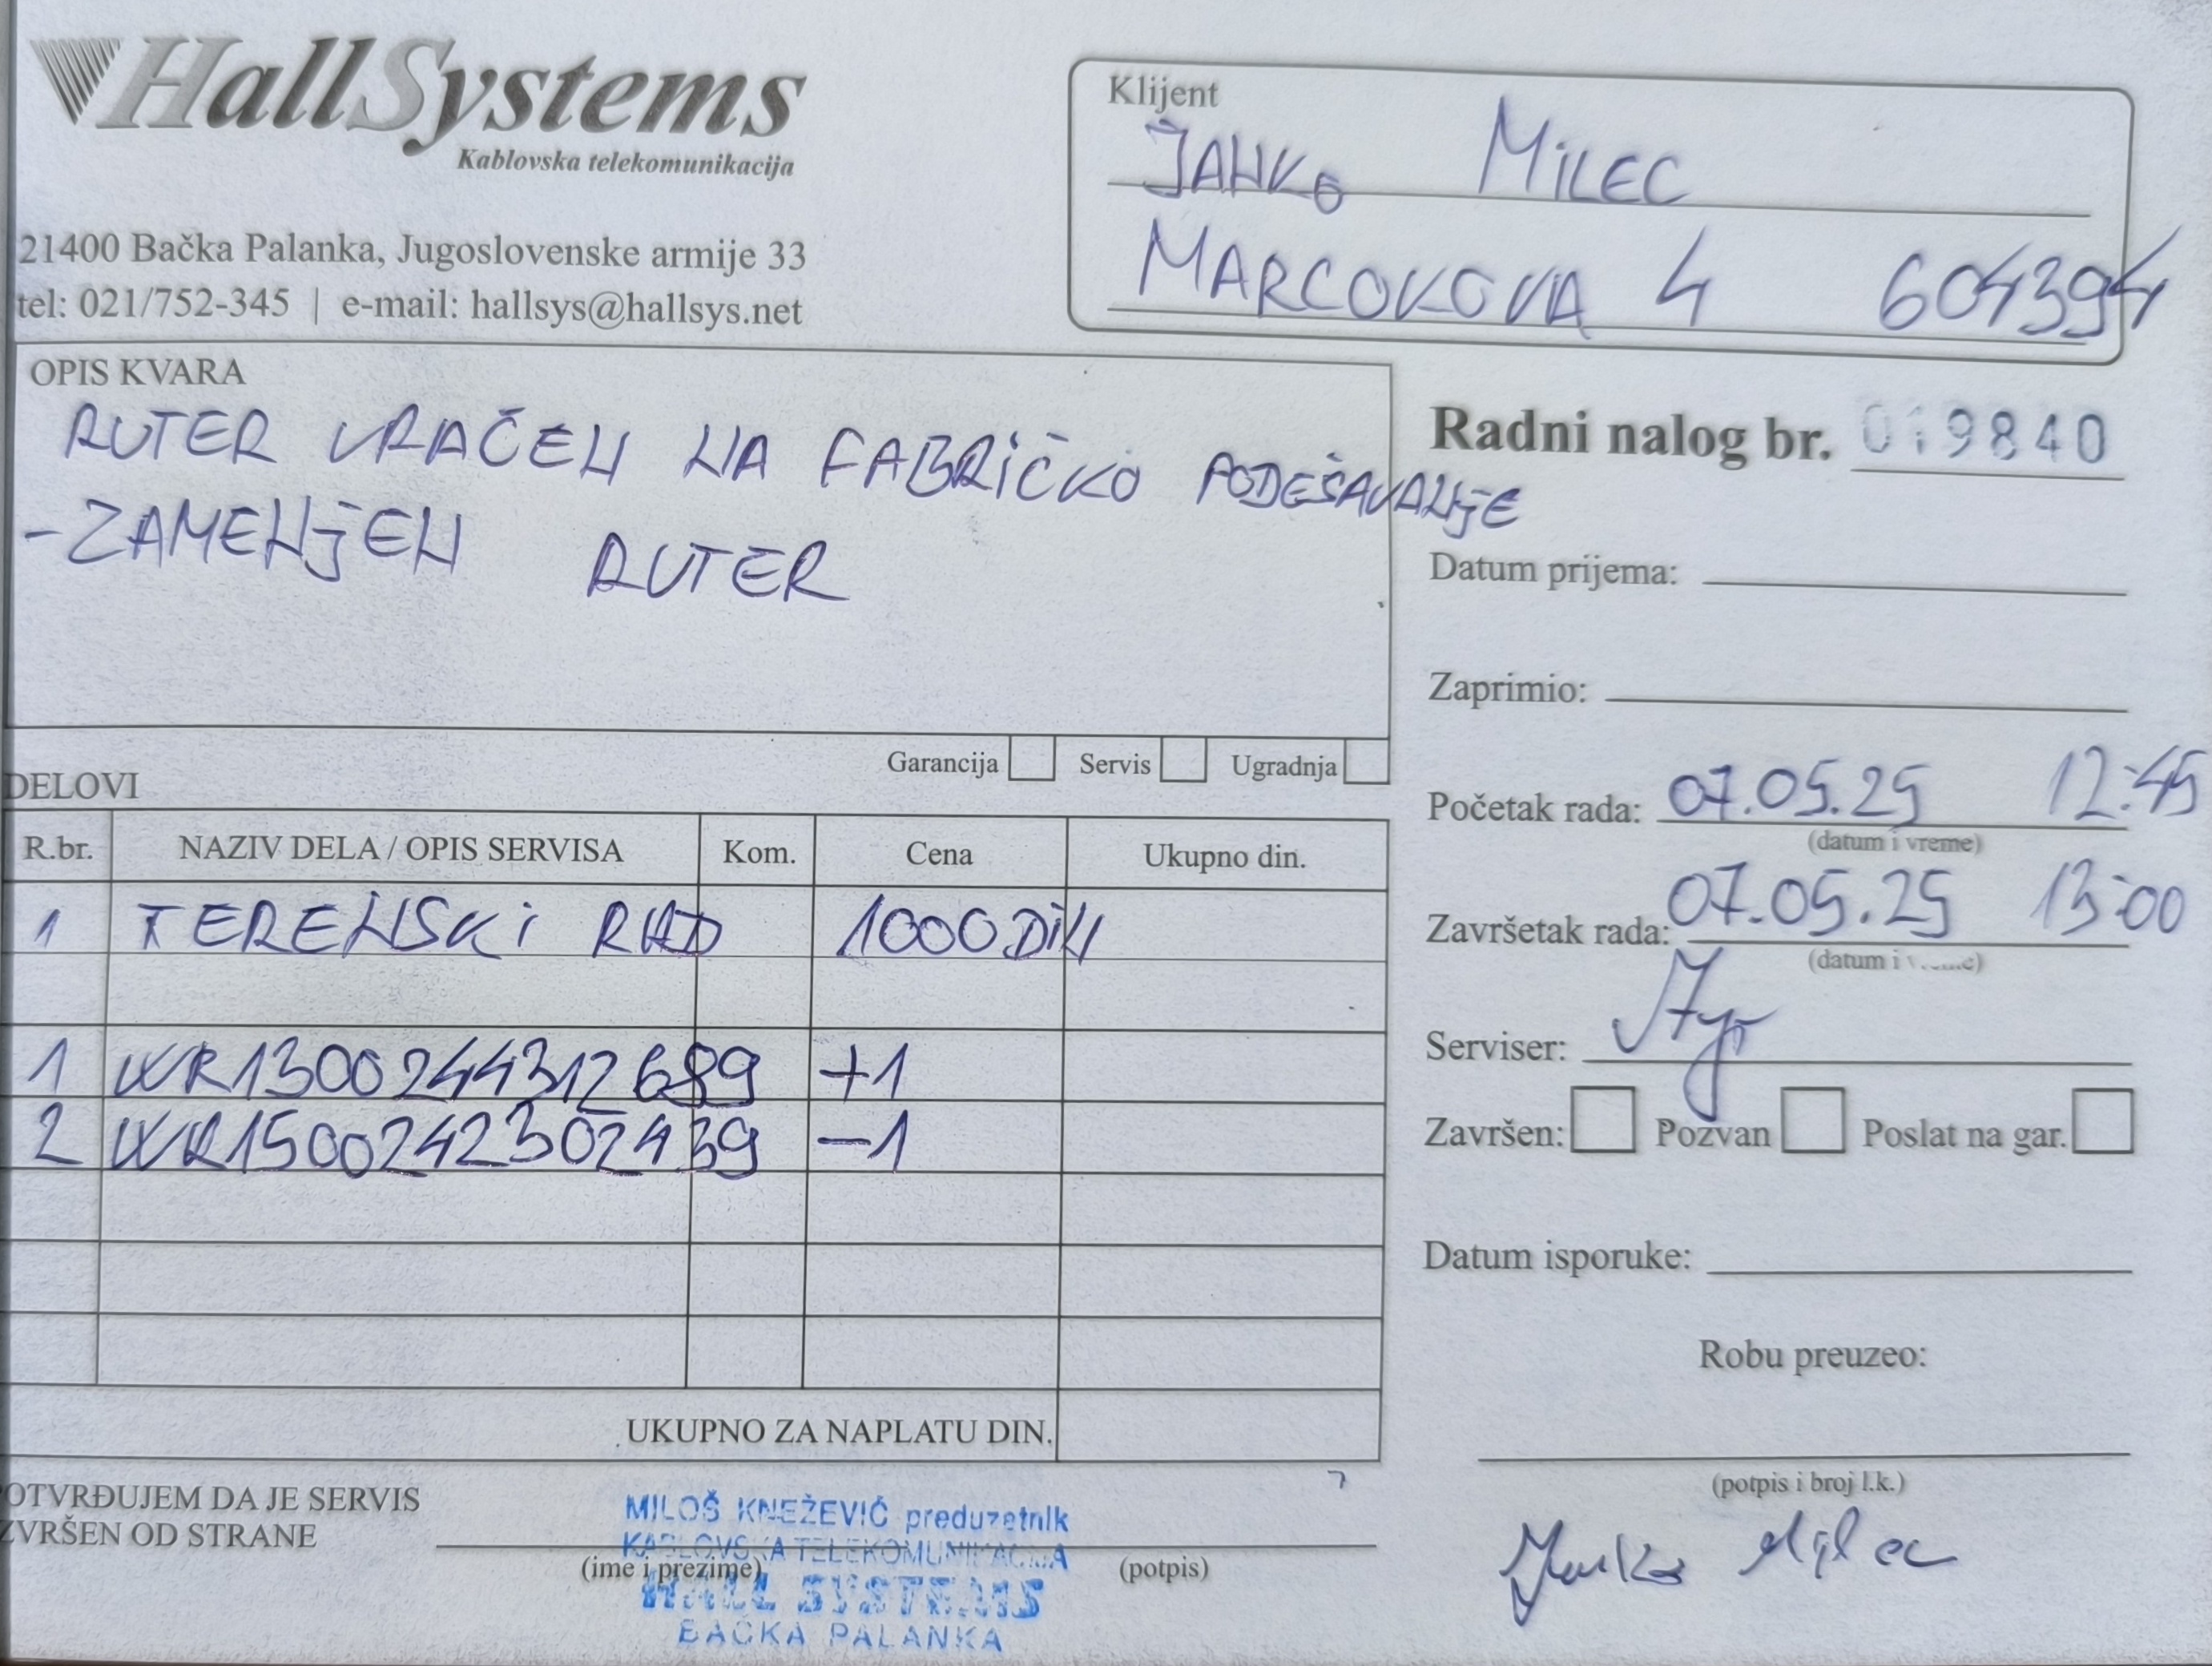 HallSystems
Kablovska telekomunikacija
21400 Bačka Palanka, Jugoslovenske armije 33
tel: 021/752-345 | e-mail: hallsys@hallsys.net
Klijent
JANKO MILEC
MARCOKOVA 4 604394
OPIS KVARA
RUTER VRAČEN NA FABRIČKO PODEŠAVANJE
-ZAMENJEN RUTER
Garancija Servis Ugradnja
Radni nalog br. 019840
Datum prijema:
Zaprimio:
Početak rada: 07.05.25 12:45
(datum i vreme)
Završetak rada: 07.05.25 13:00
(datum i vreme)
Serviser:
Završen: Pozvan Poslat na gar.
Datum isporuke:
Robu preuzeo:
(potpis i broj l.k.)
Janko Milec
DELOVI
R.br. NAZIV DELA / OPIS SERVISA Kom. Cena Ukupno din.
1 TERENSKI RAD 1000 DIN
1 WR1300244312689 +1
2 WR1500242302439 -1
UKUPNO ZA NAPLATU DIN.
OTVRĐUJEM DA JE SERVIS
ZVRŠEN OD STRANE
(ime i prezime) (potpis)
MILOŠ KNEŽEVIĆ preduzetnik
KABLOVSKA TELEKOMUNIKACIJA
HALL SYSTEMS
BAČKA PALANKA